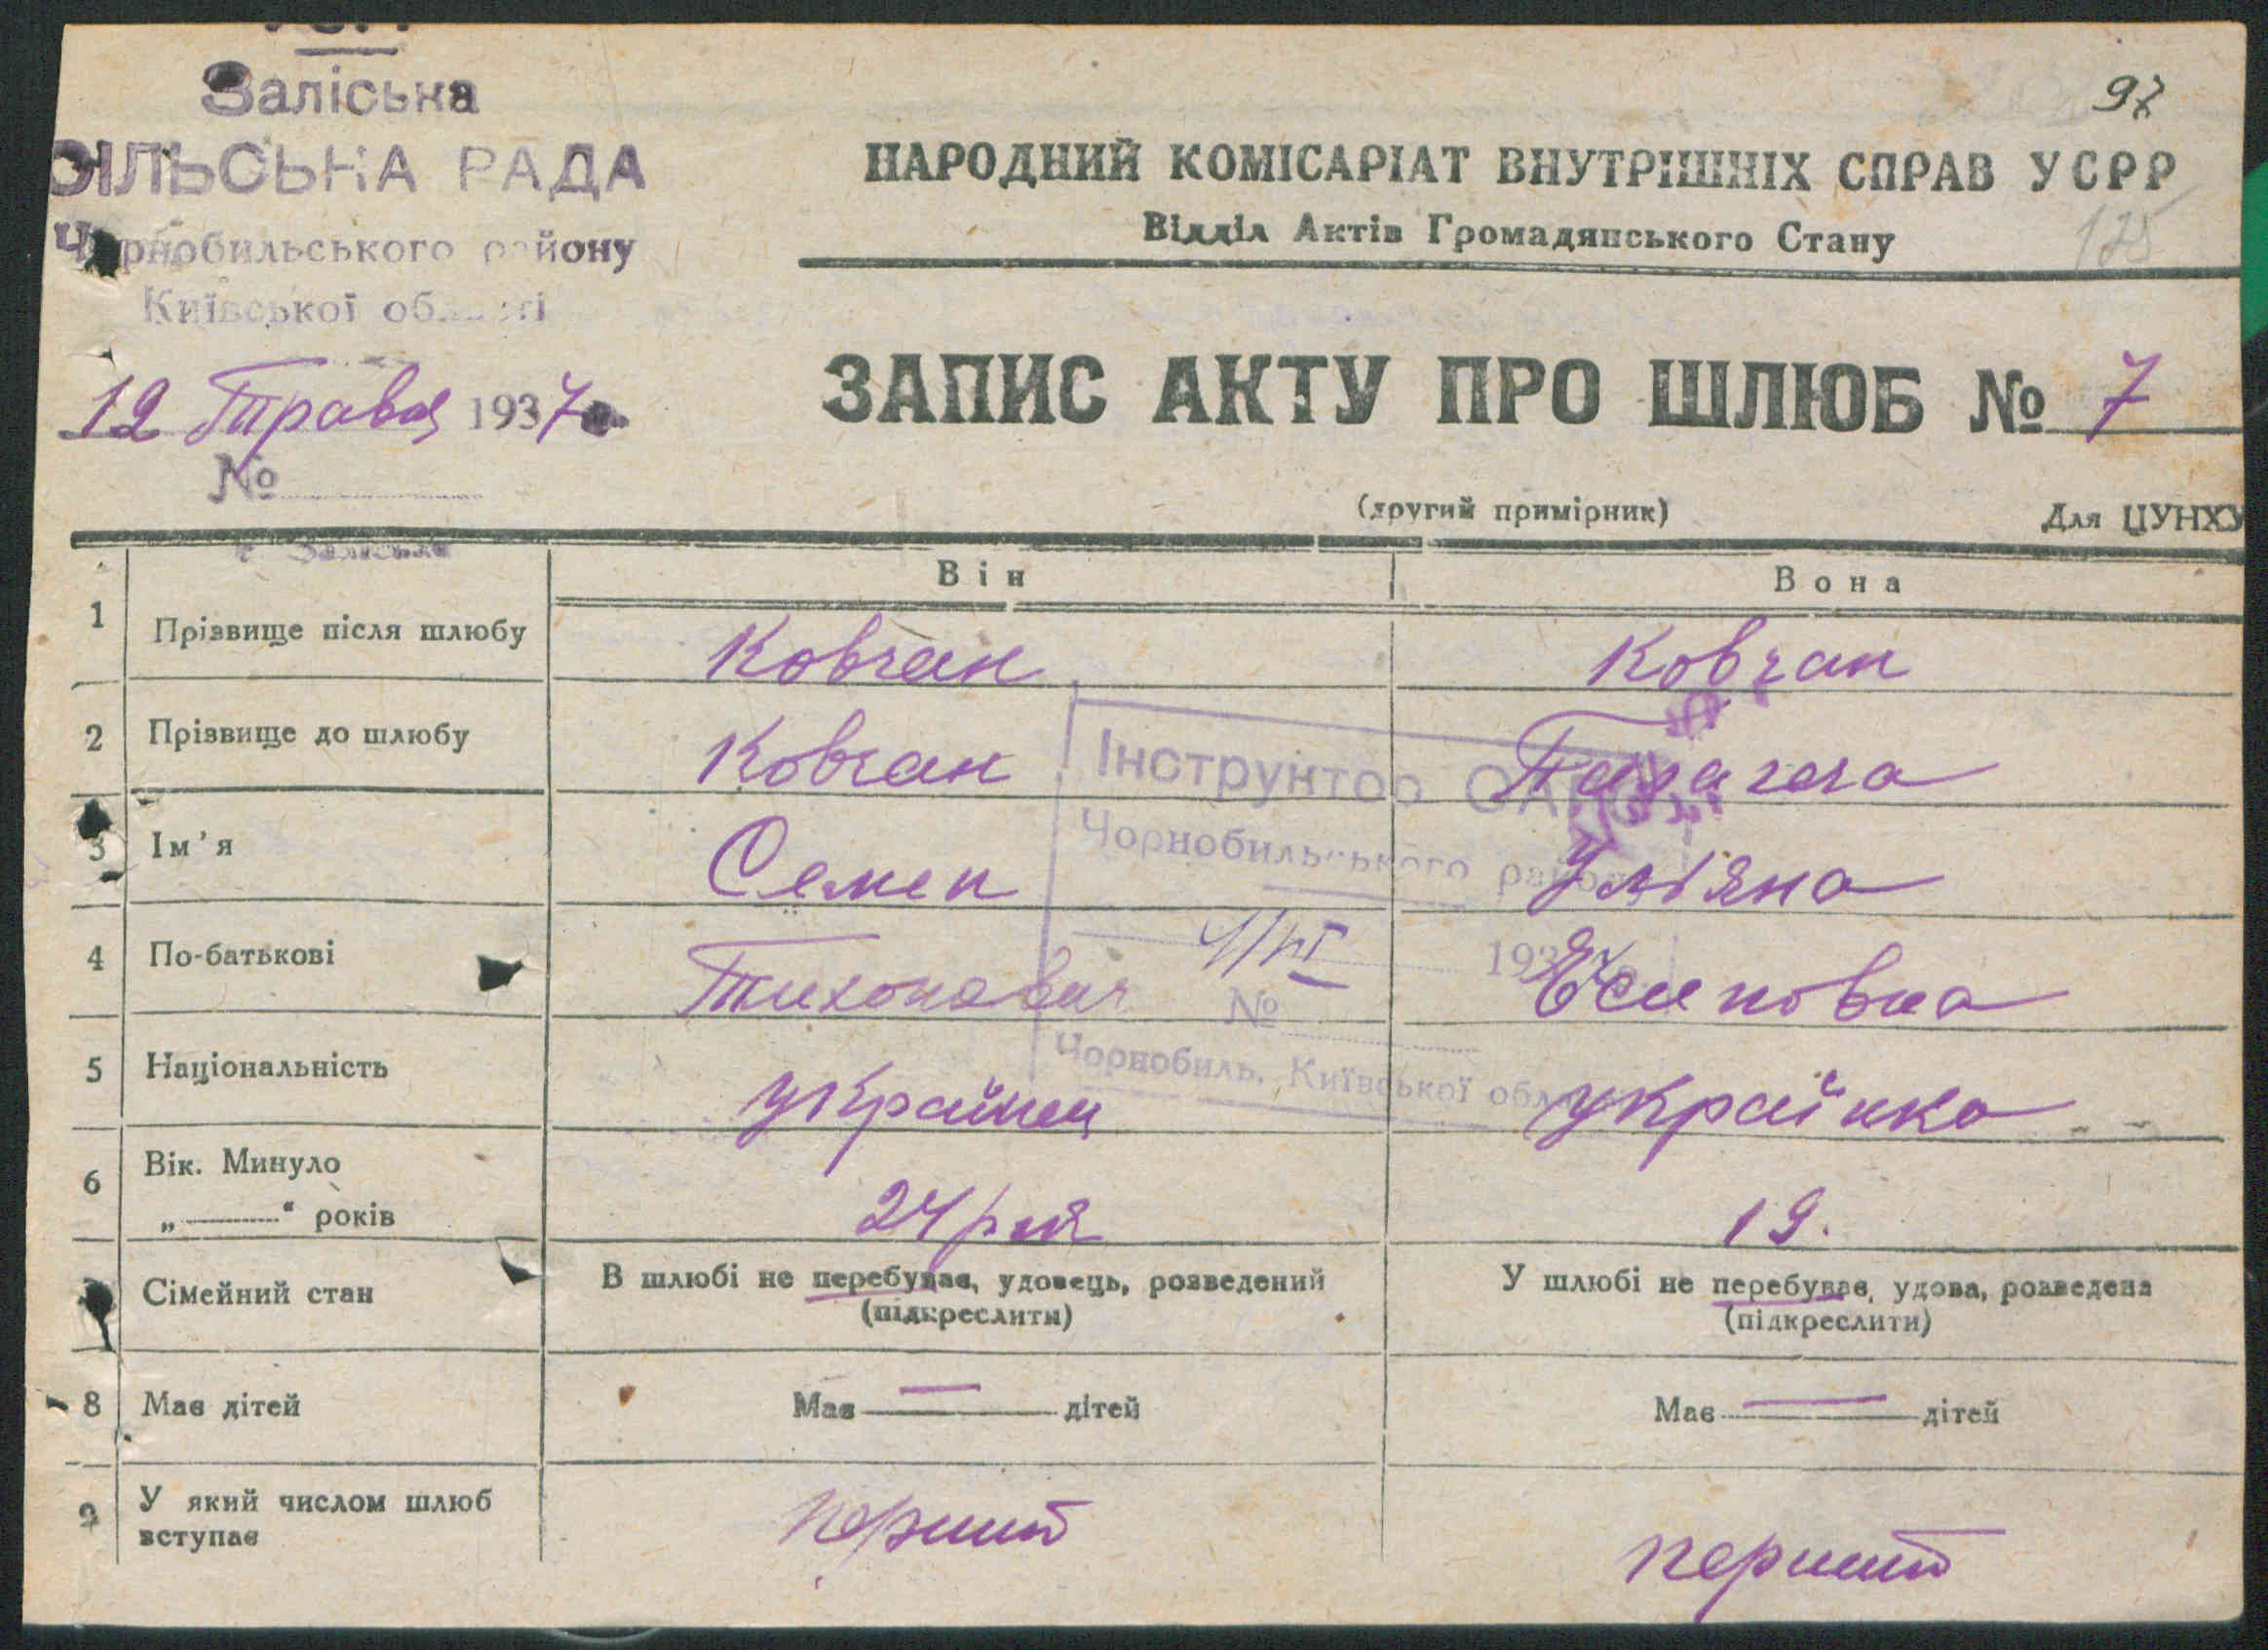 Заліська
СІЛЬСЬКА РАДА
Чорнобильського району
Київської області
12 Травня 1937
№
97
НАРОДНИЙ КОМІСАРІАТ ВНУТРІШНІХ СПРАВ УСРР
Відділ Актів Громадянського Стану
125
ЗАПИС АКТУ ПРО ШЛЮБ № 7
(другий примірник)
Для ЦУНХУ
с. Заліська
Він Вона
1 Прізвище після шлюбу Ковган Ковган
2 Прізвище до шлюбу Ковган
Інструктор ОАГС
3 Ім'я Семен Уляна
Чорнобильського району
4 По-батькові Тихонович Єсиповна
193
№
Чорнобиль, Київської області
5 Національність українец українка
6 Вік. Минуло
„———" років 24 19.
Сімейний стан В шлюбі не перебуває, удовець, розведений У шлюбі не перебуває, удова, розведена
(підкреслити) (підкреслити)
8 Має дітей Має — дітей Має — дітей
9 У який числом шлюб
вступає перший перший